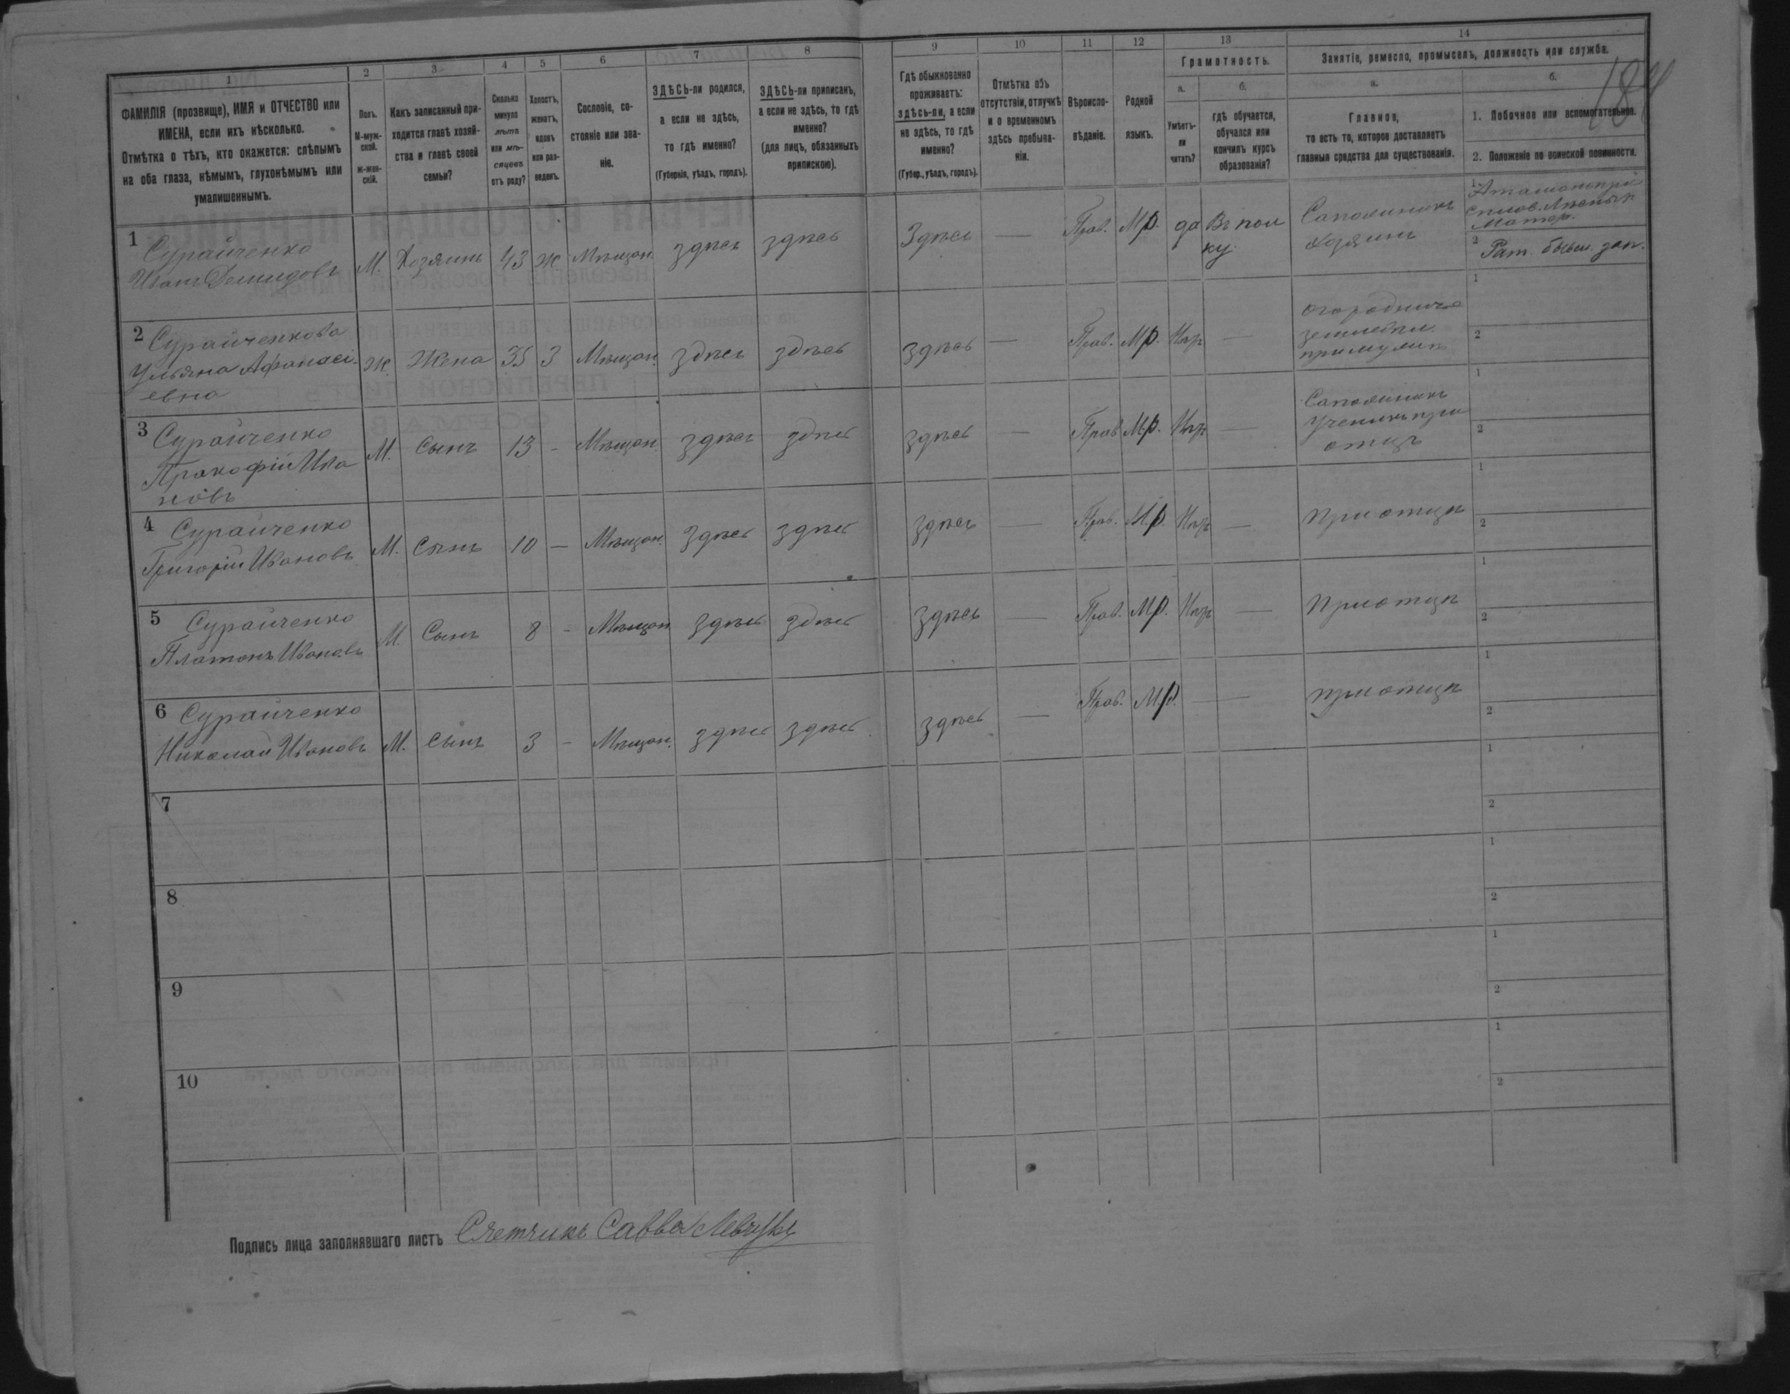 1 2 3 4 5 6 7 8 9 10 11 12 13 14
ФАМИЛІЯ (прозвище), ИМЯ и ОТЧЕСТВО или
ИМЕНА, если ихъ нѣсколько.
Отмѣтка о тѣхъ, кто окажется: слѣпымъ
на оба глаза, нѣмымъ, глухонѣмымъ или
умалишеннымъ.
Полъ.
М-муж-
ской.
Ж-жен-
скій.
Какъ записанный при-
ходится главѣ хозяй-
ства и главѣ своей
семьи?
Сколько
минуло
лѣтъ
или мѣ-
сяцевъ
отъ роду?
Холостъ,
женатъ,
вдовъ
или раз-
веденъ.
Сословіе, со-
стояніе или зва-
ніе.
ЗДѢСЬ-ли родился,
а если не здѣсь,
то гдѣ именно?
(Губернія, уѣздъ, городъ).
ЗДѢСЬ-ли приписанъ,
а если не здѣсь, то гдѣ
именно?
(для лицъ, обязанныхъ
припискою).
Гдѣ обыкновенно
проживаетъ:
здѣсь-ли, а если
не здѣсь, то гдѣ
именно?
(Губер., уѣздъ, городъ).
Отмѣтка объ
отсутствіи, отлучкѣ
и о временномъ
здѣсь пребыва-
ніи.
Вѣроиспо-
вѣданіе.
Родной
языкъ.
Грамотность.
а.
Умѣетъ-
ли
читать?
б.
гдѣ обучается,
обучался или
кончилъ курсъ
образованія?
Занятіе, ремесло, промыселъ, должность или служба.
а.
Главное,
то есть то, которое доставляетъ
главныя средства для существованія.
б.
1. Побочное или вспомогательное.
2. Положеніе по воинской повинности.
1 Сурайченко
Иванъ Демидовъ
М. Хозяинъ 43 ж Мѣщан. здѣсь здѣсь Здѣсь — Прав. Мр. да Въ пол
ку.
Сапожникъ
хозяинъ
1
2 Рат. бывш. зап.
2 Сурайченкова
Ульяна Афанасі
евна
Ж. Жена 35 З Мѣщан. здѣсь здѣсь здѣсь — Прав. Мр. Нѣтъ —
огородниче
1
2
3 Сурайченко
Прокофій Ива
новъ
М. Сынъ 13 - Мѣщан. здѣсь здѣсь здѣсь — Прав. Мр. Нѣтъ —
Сапожникъ
ученикъ при
отцѣ
1
2
4 Сурайченко
Григорій Ивановъ
М. Сынъ 10 — Мѣщан. здѣсь здѣсь здѣсь — Прав. Мр. Нѣтъ — При отцѣ
1
2
5 Сурайченко
Платонъ Ивановъ
М. Сынъ 8 - Мѣщан. здѣсь здѣсь здѣсь — Прав. Мр. Нѣтъ — При отцѣ
1
2
6 Сурайченко
Николай Ивановъ
М. Сынъ 3 - Мѣщан. здѣсь здѣсь здѣсь — Прав. Мр. — при отцѣ
1
2
7
1
2
8
1
2
9
1
2
10
1
2
Подпись лица заполнявшаго листъ Счетчикъ Савва